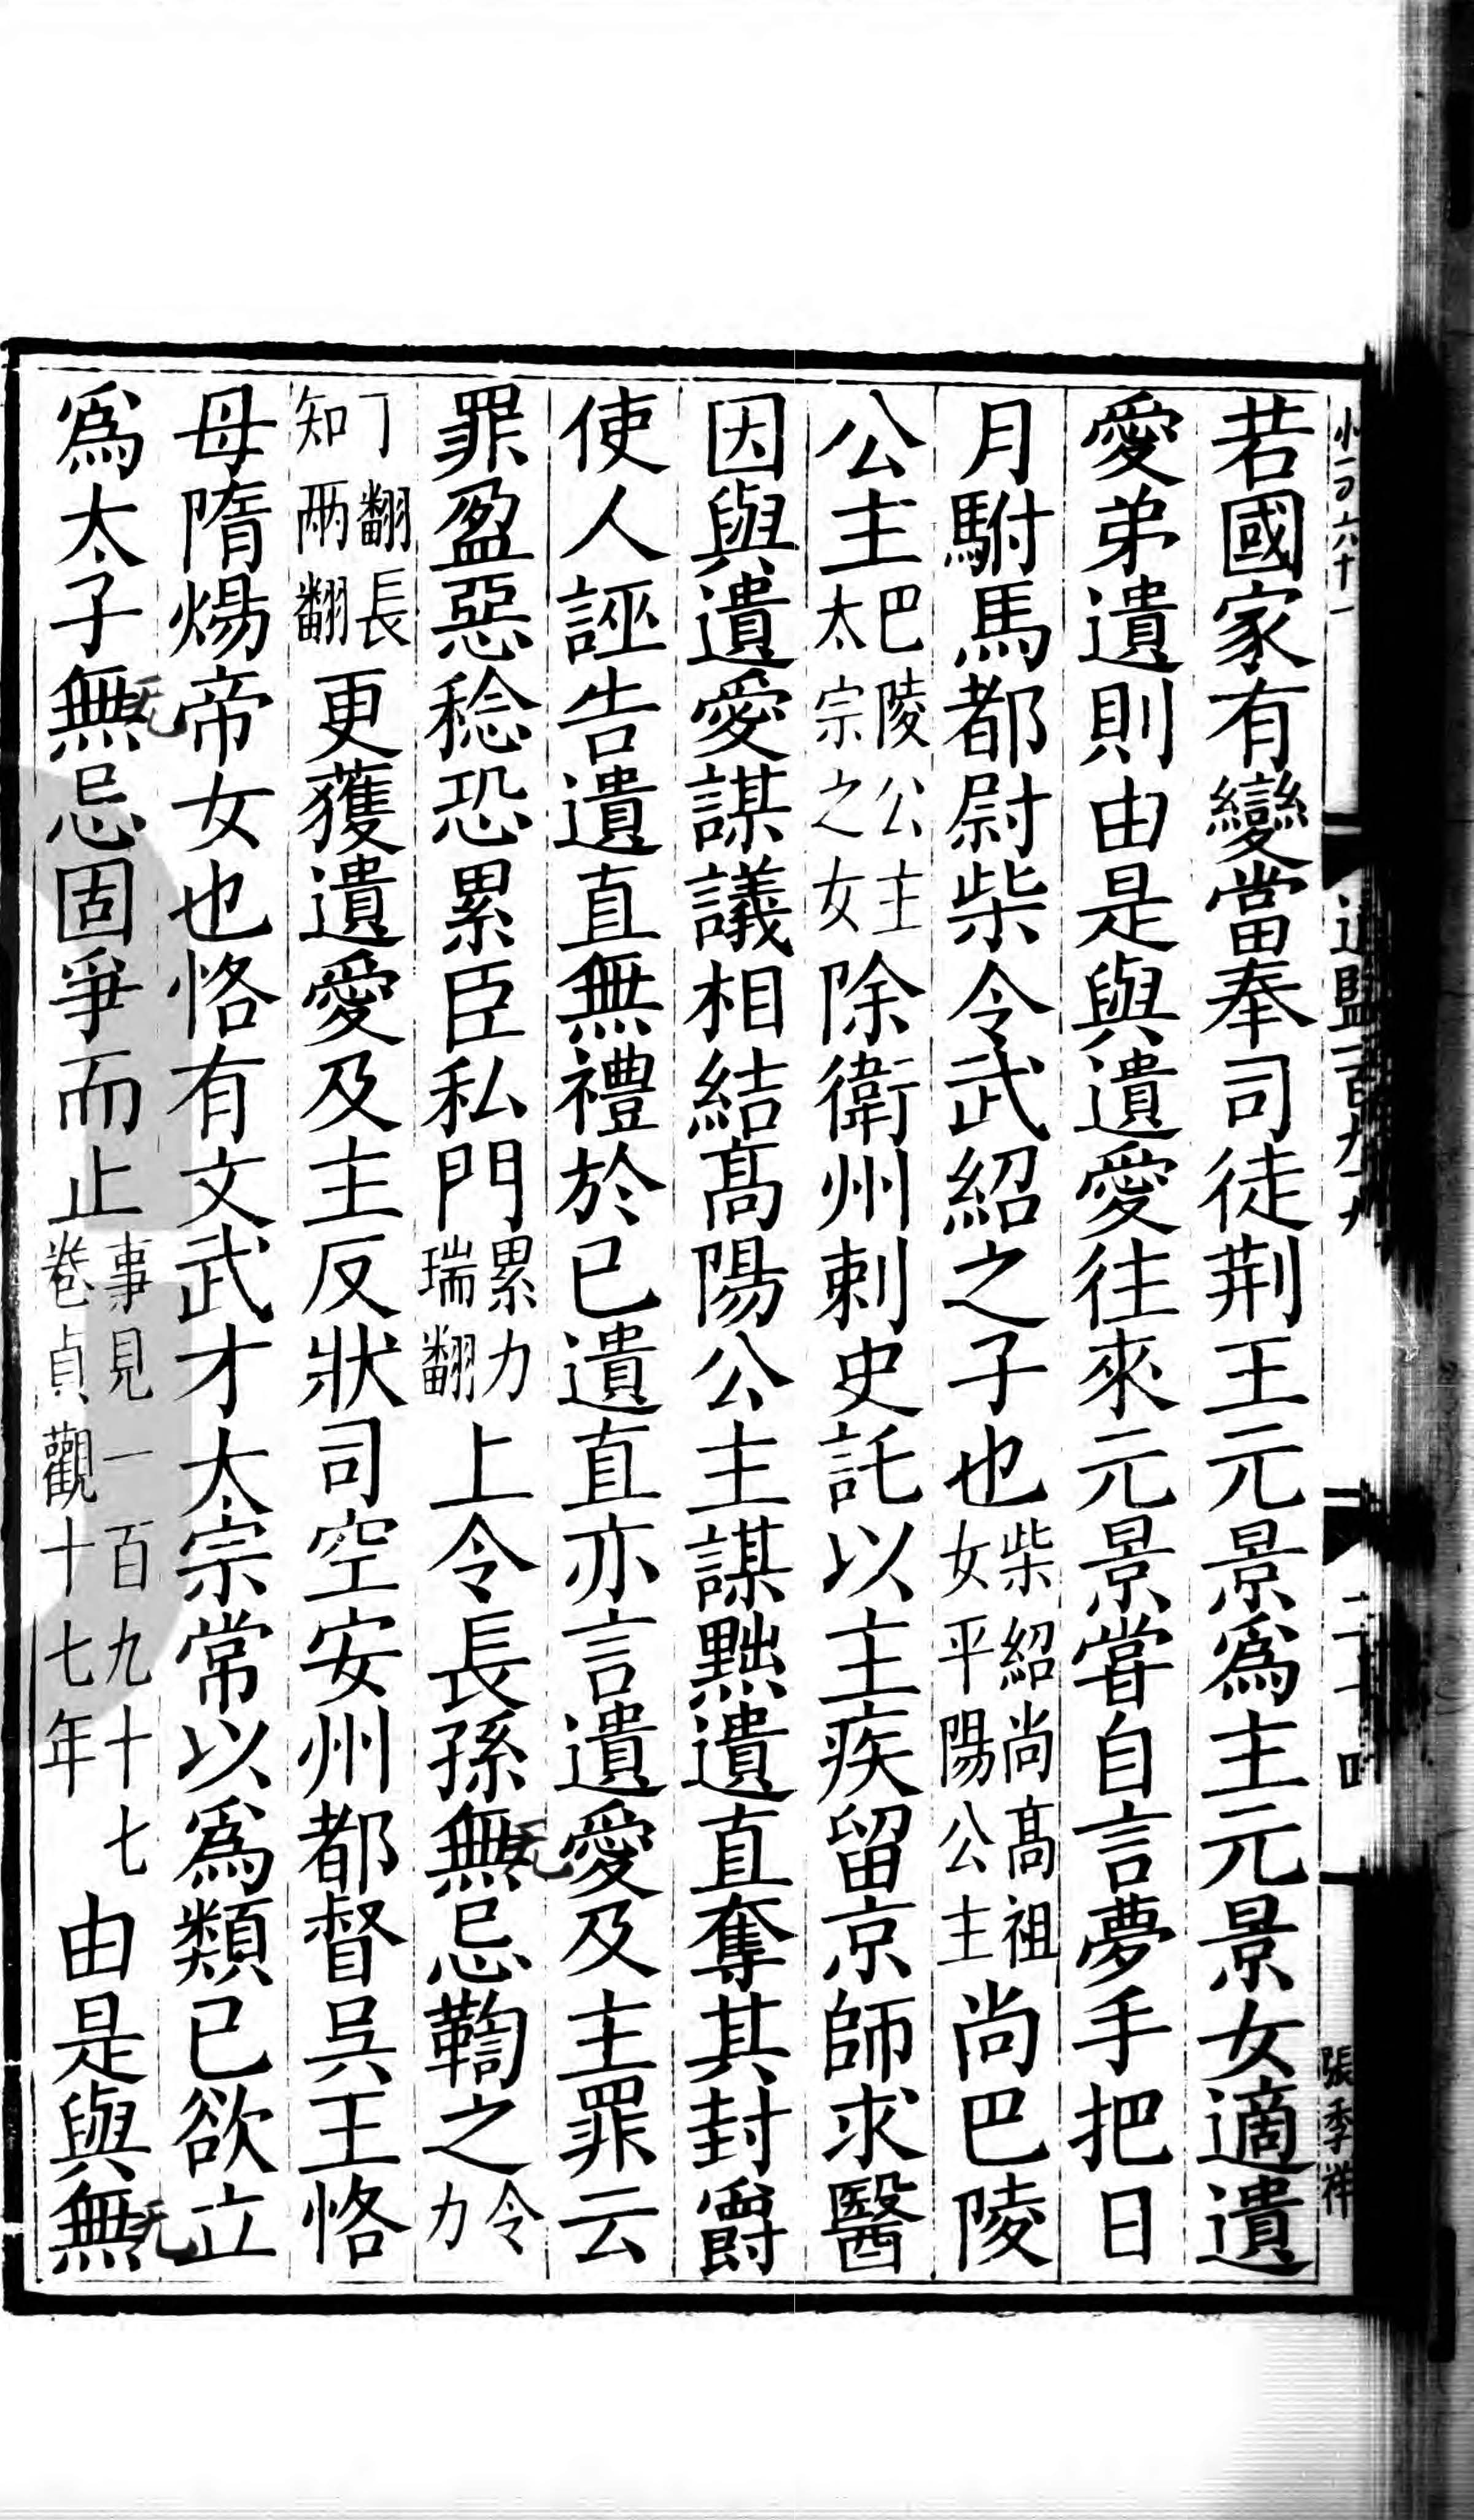 若國家有變當奉司徒荆王元景爲主元景女適遺
愛弟遺則由是與遺愛往來元景甞自言夢手把日
月駙馬都尉柴令武紹之子也柴紹尚髙祖女平陽公主尚巴陵
公主巴陵公主太宗之女除衛州刺史託以主疾留京師求醫
因與遺愛謀議相結髙陽公主謀黜遺直奪其封爵
使人誣告遺直無禮於已遺直亦言遺愛及主罪云
罪盈惡稔恐累臣私門累力瑞翻上令長孫無忌鞫之令力
丁翻長知兩翻更獲遺愛及主反狀司空安州都督吳王恪
母隋煬帝女也恪有文武才太宗常以爲類已欲立
爲太子無忌固爭而止事見一百九十七卷貞觀十七年由是與無
二十四
張季祥